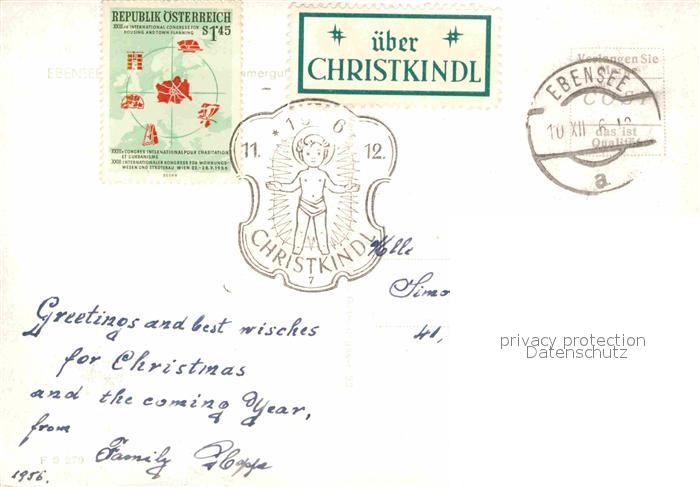 REPUBLIK ÖSTERREICH
XXIII rd INTERNATIONAL CONGRESS FOR
HOUSING AND TOWN PLANNING
S 1·45
XXIIIe CONGRES INTERNATIONAL POUR L'HABITATION
ET L'URBANISME
XXIII INTERNATIONALER KONGRESS FÜR WOHNUNGS-
WESEN UND STÄDTEBAU WIEN 22.-28.7.1956
über
CHRISTKINDL
Verlangen Sie
COSY
das ist
Qualität
EBENSEE
10 XII
a
EBENSEE
11. 12.
CHRISTKINDL
7
Melle
Simo
41,
privacy protection
Datenschutz
Greetings and best wisches
for Christmas
and the coming Year,
from
Family
F 9 279
1956.